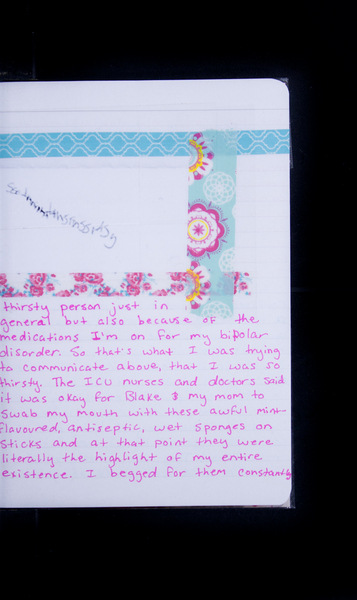 thirsty person just in
general but also because of the
medications I'm on for my bipolar
disorder. So that's what I was trying
to communicate above, that I was so
thirsty. The ICU nurses and doctors said
it was okay for Blake & my mom to
swab my mouth with these awful mint
flavoured, antiseptic, wet sponges on
sticks and at that point they were
literally the highlight of my entire
existence. I begged for them constantly